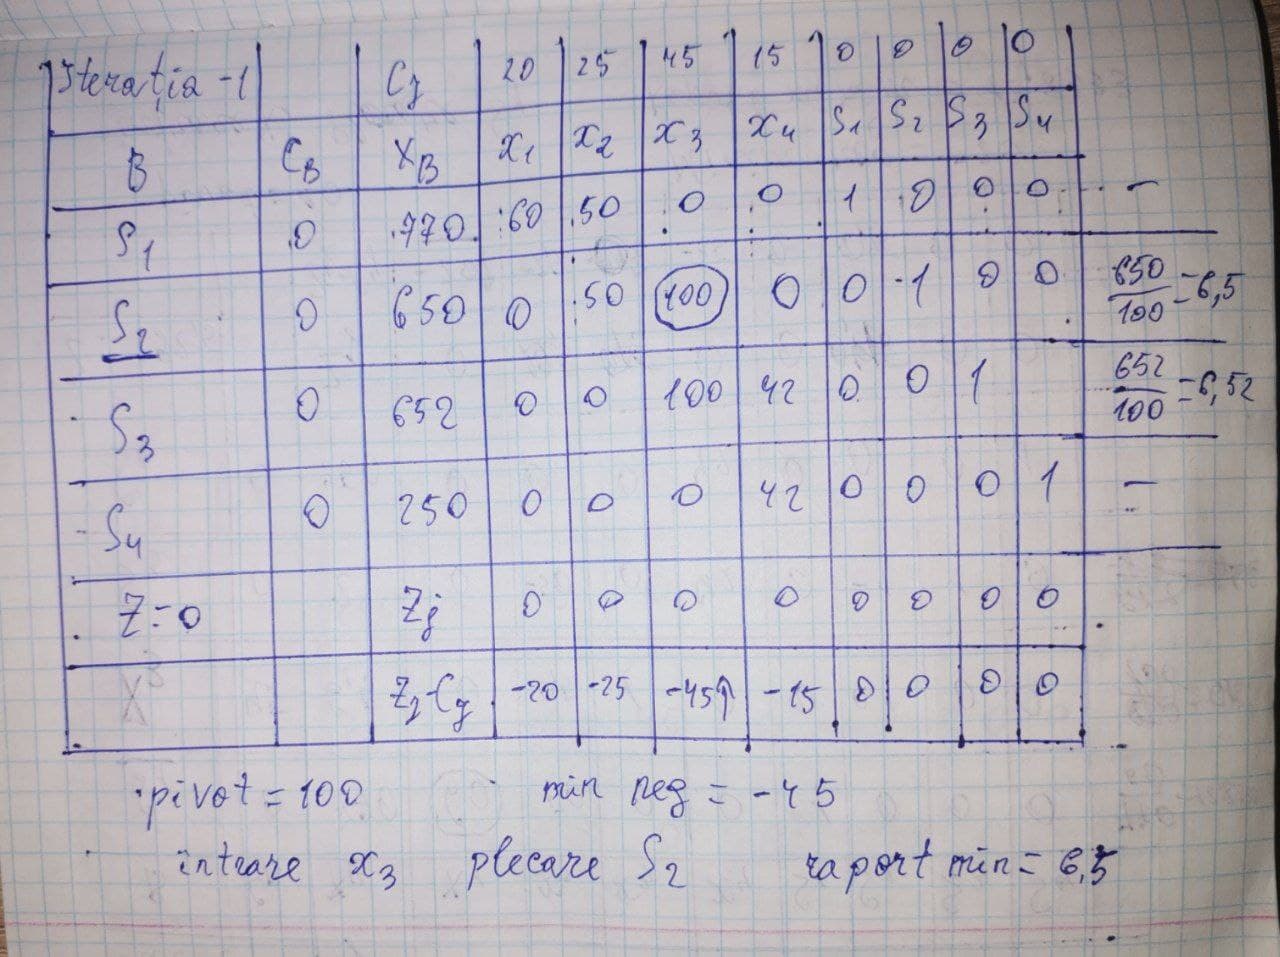 Iterația -1 Cj 20 25 45 15 0 0 0 0
B CB XB x1 x2 x3 x4 S1 S2 S3 S4
S1 0 770 60 50 0 0 1 0 0 0 -
S2 0 650 0 50 100 0 0 1 0 0 650/100 = 6,5
S3 0 652 0 0 100 42 0 0 1 652/100 = 6,52
S4 0 250 0 0 0 42 0 0 0 1 -
Z=0 Zj 0 0 0 0 0 0 0 0
Zj-Cj -20 -25 -45↑ -15 0 0 0 0
pivot = 100 min neg = -45
intrare x3 plecare S2 raport min = 6,5